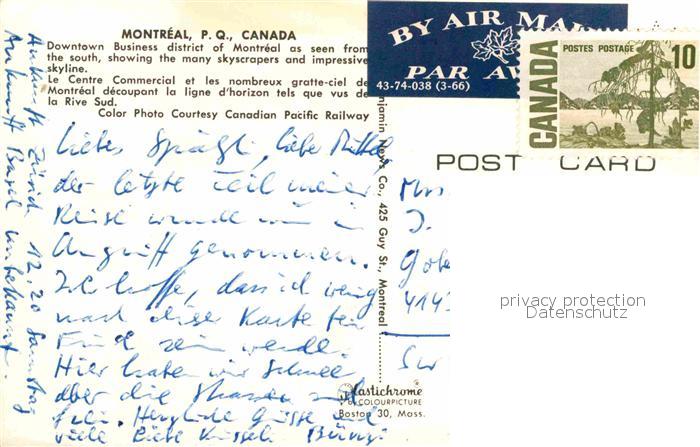 MONTRÉAL, P. Q., CANADA
Downtown Business district of Montréal as seen from
the south, showing the many skyscrapers and impressive
skyline.
Le Centre Commercial et les nombreux gratte-ciel de
Montréal découpant la ligne d'horizon tels que vus de
la Rive Sud.
Color Photo Courtesy Canadian Pacific Railway
BY AIR MAIL
PAR AV
43-74-038 (3-66)
CANADA
POSTES POSTAGE
10
POST CARD
njamin News Co., 425 Guy St., Montreal
Plastichrome
BY COLOURPICTURE
Boston 30, Mass.
Liebes Spätzli, liebe
der letzte Teil meiner
Reise wurde nun in
Angriff genommen.
Ich hoffe, dass ich wenig
nach dieser Karte bei
Euch sein werde.
Hier haben wir Schnee
aber die Strassen sind
frei. Herzliche Grüsse und
viele liebe Küssli
Ankunft Zürich 12,20 Samstag
Ankunft Basel unbekannt.
J.
414
privacy protection
Datenschutz